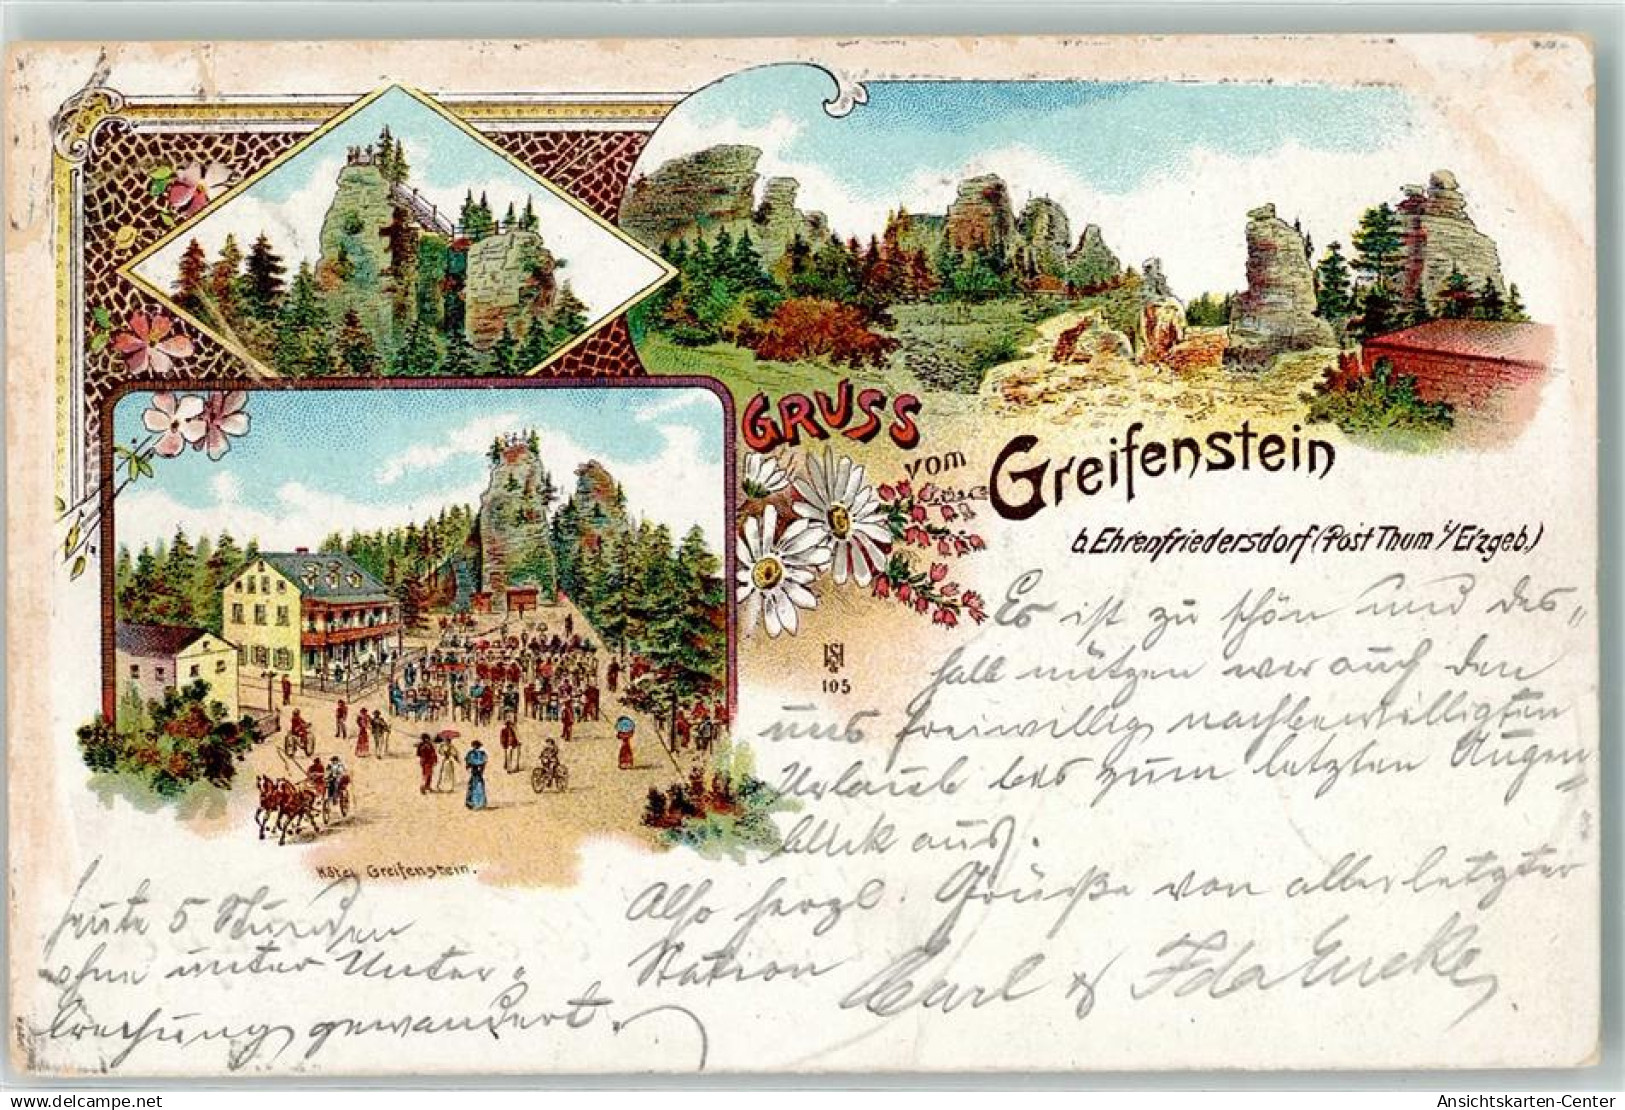 GRUSS
vom
Greifenstein
b. Ehrenfriedersdorf (Post Thum i/Erzgeb.)
HS
105
Hôtel Greifenstein.
Es ist zu schön und des„
halb nützen wir auch den
uns freiwillig nachbewilligten
Urlaub bis zum letzten Augen„
blick aus.
Also herzl. Grüße von allerletzter
Station
Carl & Ida Encke
heute 5 Stunden
ohne unter Unter„
brechung gewandert.
oldthing.de
Ansichtskarten-Center